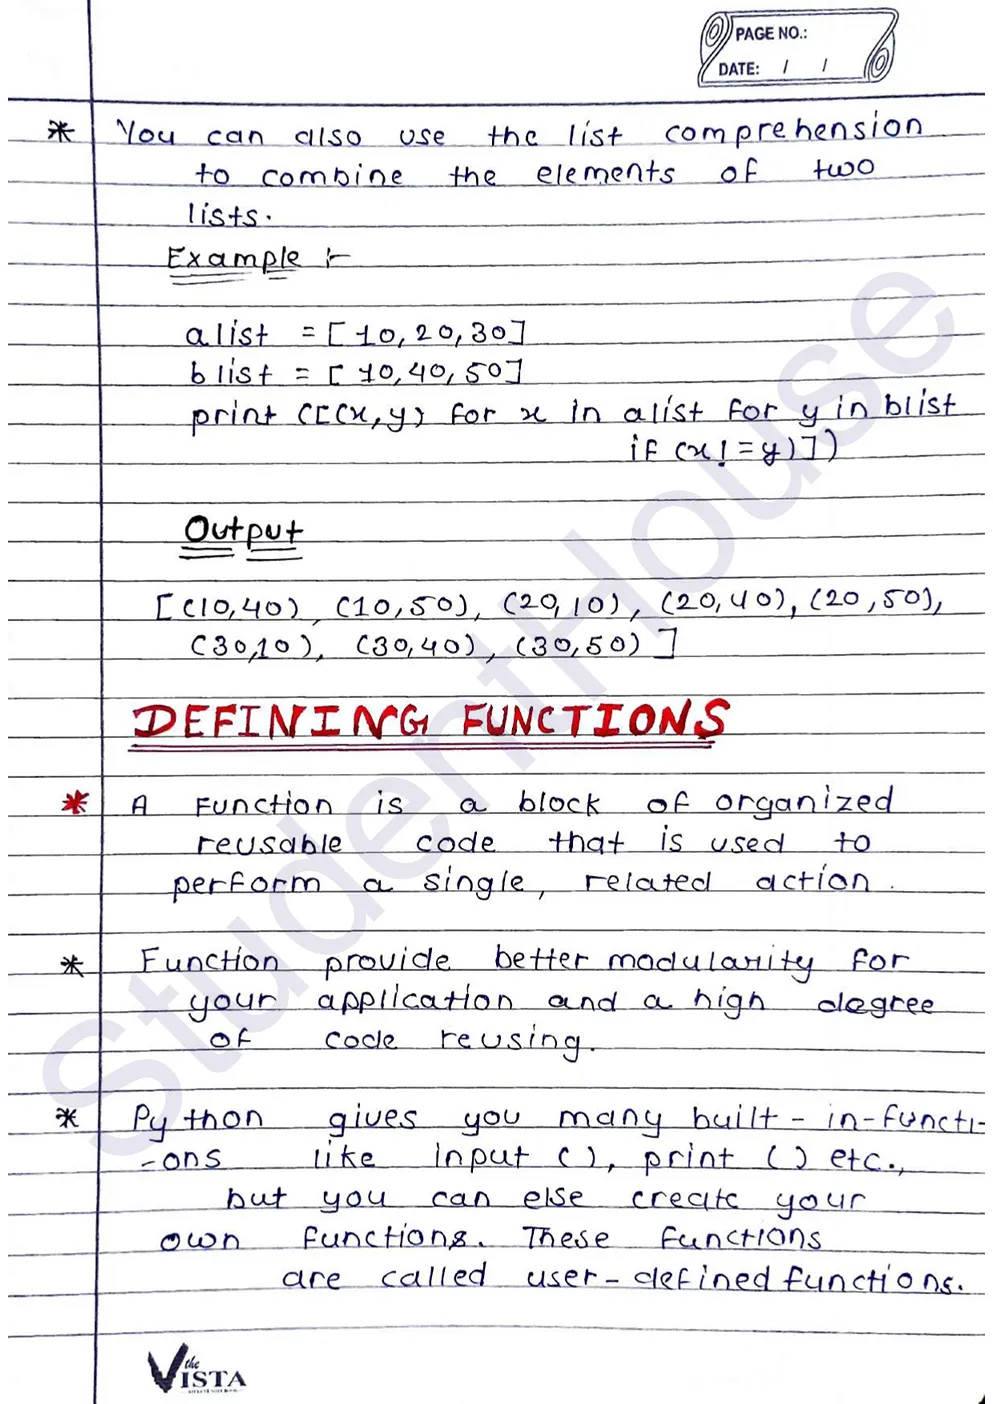 PAGE NO.:
DATE: / /
* You can also use the list comprehension
to combine the elements of two
lists.
Example :-
alist = [10,20,30]
blist = [10,40,50]
print ([(x,y) for x in alist for y in blist
if (x!=y)])
Output
[(10,40), (10,50), (20,10), (20,40), (20,50),
(30,10), (30,40), (30,50)]
DEFINING FUNCTIONS
* A Function is a block of organized
reusable code that is used to
perform a single, related action.
* Function provide better modularity for
your application and a high degree
of code reusing.
* Python gives you many built-in-functi-
-ons like input (), print () etc.,
but you can else create your
own functions. These functions
are called user-defined functions.
StudentHouse
the
VISTA